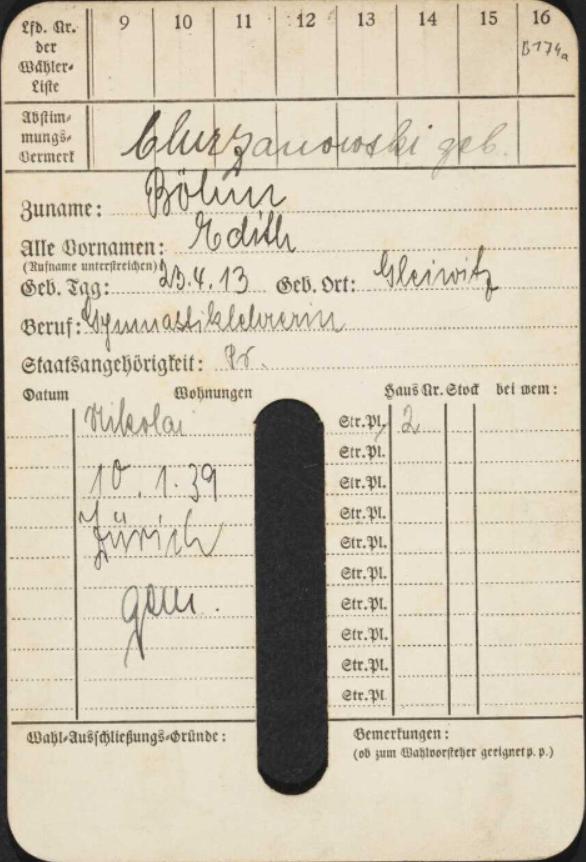 Lfd. Nr. der Wähler-Liste 9 10 11 12 13 14 15 16
B174a
Abstim-mungs-Vermerk
Chrzanowski geb.
Zuname: Böhm
Alle Vornamen: Edith
(Rufname unterstreichen)
Geb. Tag: 23.4.13 Geb. Ort: Gleiwitz
Beruf: Gymnastiklehrerin
Staatsangehörigkeit: Pr.
Datum Wohnungen Haus Nr. Stock bei wem:
Nikolai Str.Pl. 2
Str.Pl.
10.1.39 Str.Pl.
Str.Pl.
Zürich Str.Pl.
Str.Pl.
gem. Str.Pl.
Str.Pl.
Str.Pl.
Str.Pl.
Wahl-Ausschließungs-Gründe: Bemerkungen:
(ob zum Wahlvorsteher geeignet p. p.)